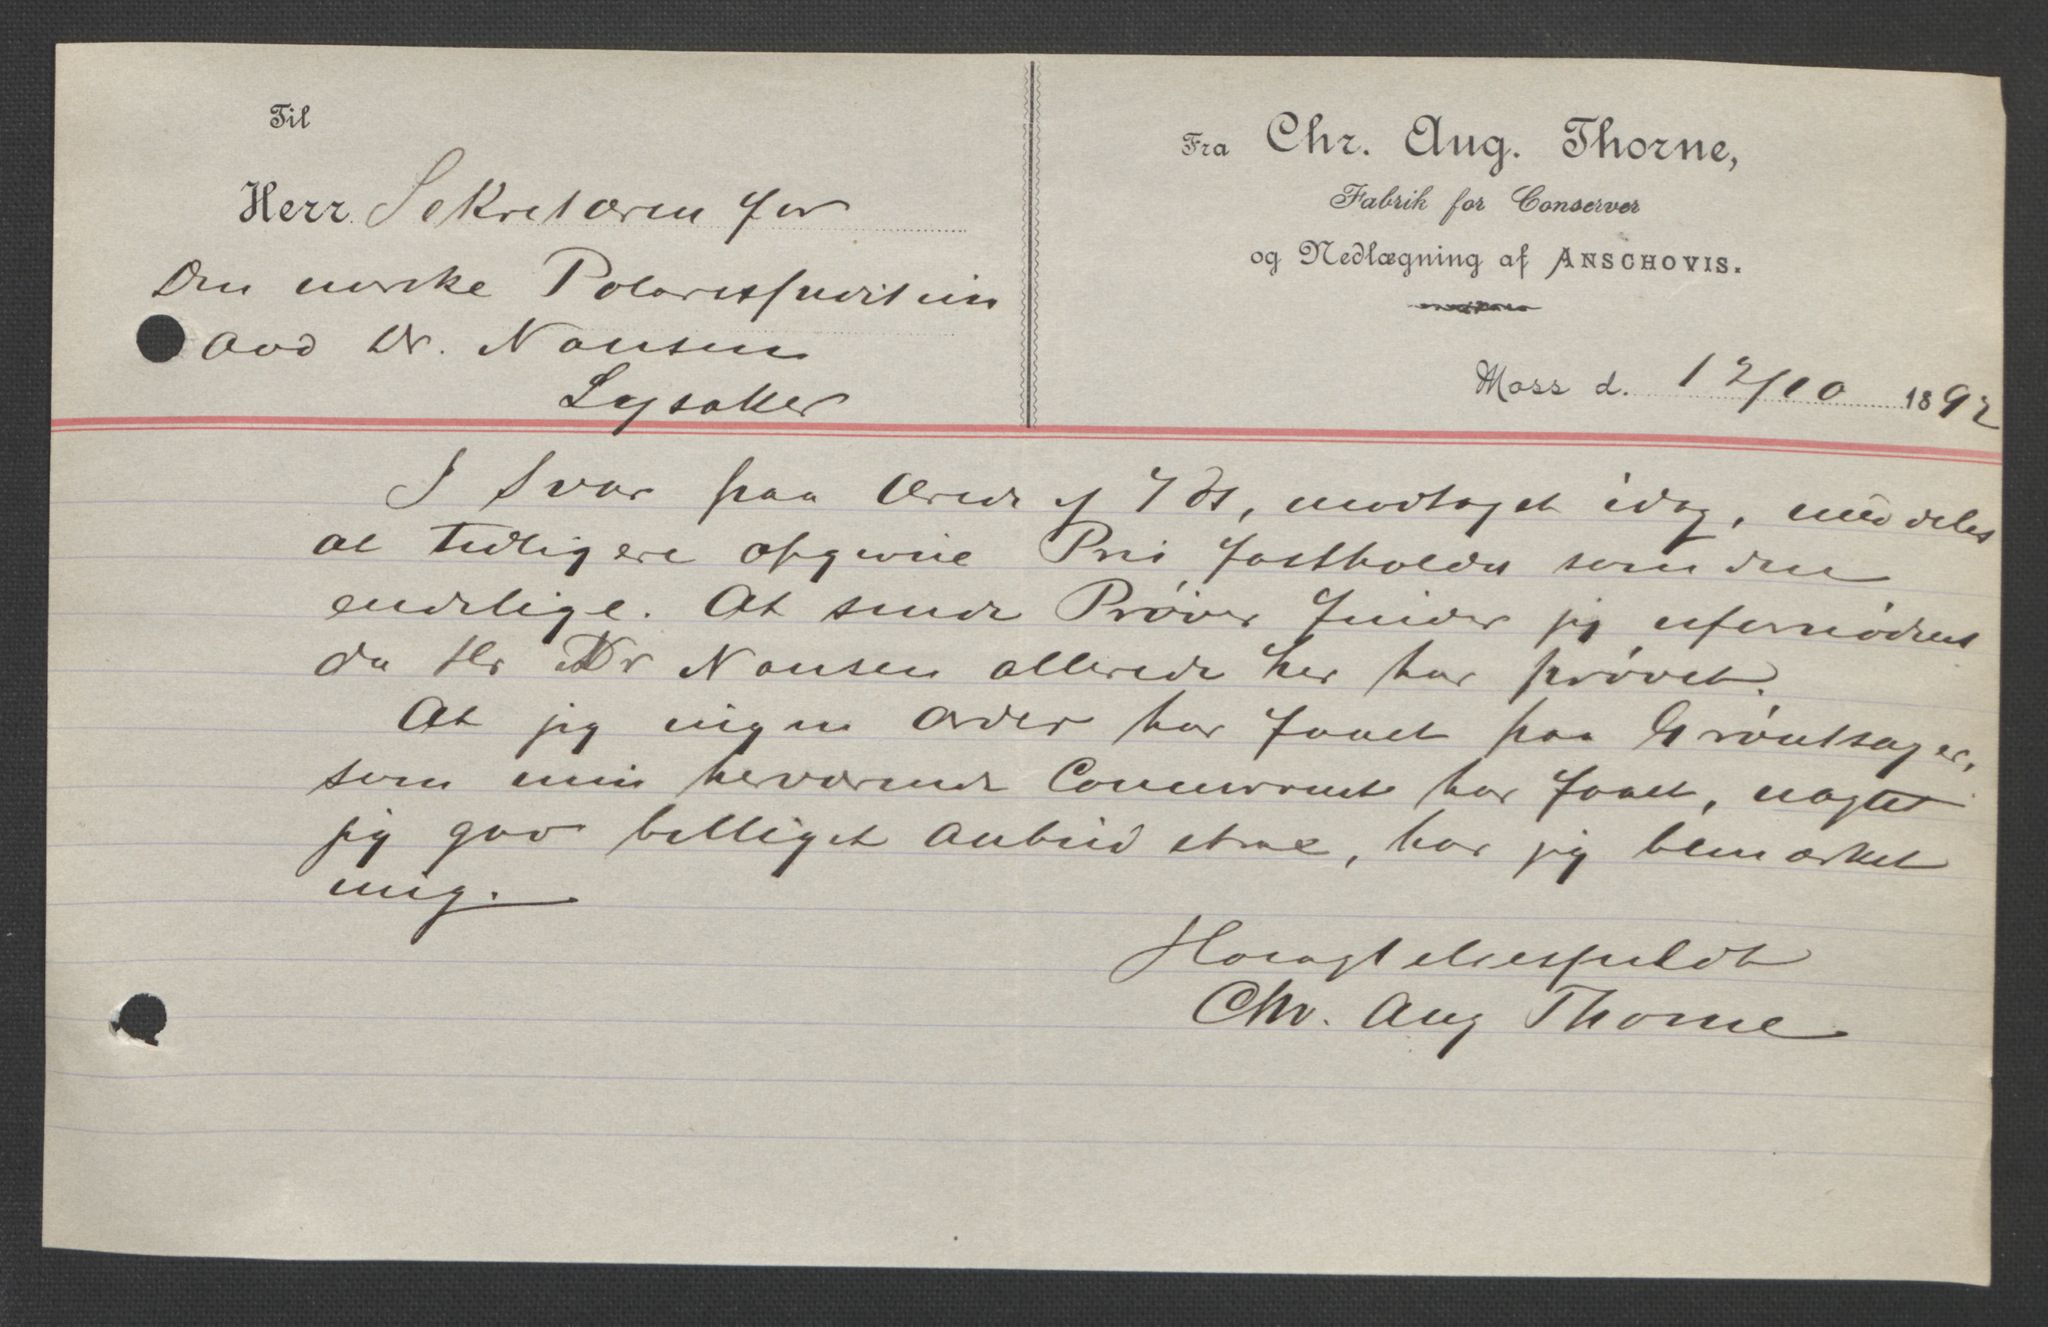 Til
Herr Sekretæren for
Den norske Polarexpedition
Dr. Nansen
Lysaker
Fra Chr. Aug. Thorne,
Fabrik for Conserver
og Nedlægning af ANSCHOVIS.
Moss d. 12/10 1892
I Svar paa ærede af 7 ds, modtaget idag, meddeles
at tidligere opgivne Pris fastholdes som den
endelige. At sende Prøver finder jeg ufornødent
da Hr Dr Nansen allerede her har prøvet.
At jeg ingen Ordre har faaet paa Grøntsager,
som min herværende Concurrent har faaet, uagtet
jeg gav billigst Anbud, har jeg bemærket
mig.
Høiagtelsesfuldt
Chr. Aug Thorne